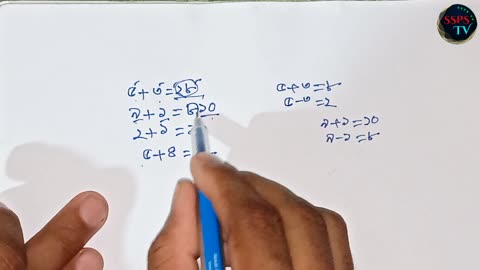 SSPS
TV
৫+৩=২৮
৯+১=৮১০
২+১=
৫+৪=
৫+৩=৮
৫-৩=২
৯+১=১০
৯-১=৮